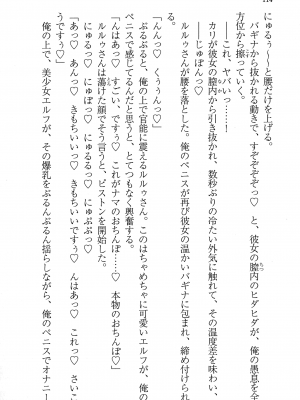 114
にゅるぅ〜〜と腰だけを上げる。
バギナから抜かれる動きで、すぞぞぞぞっ♡　と、彼女の膣内のヒダヒダが、俺の愚息を全
方位から擦っていく。
――これ、ヤバいっ…！
カリが彼女の膣内から引き抜かれ、数秒ぶりの冷たい外気に触れて、その温度差を味わい、
――じゅぽんっ♡
ルルゥさんが腰を落とした。俺のペニスが再び彼女の温かいバギナに包まれ、締め付けられ
る。
「んっ♡　くぅぅんっ♡」
ぷるぷると、俺の上で官能に震えるルルゥさん。このはちゃめちゃに可愛いエルフが、俺の
ペニスで感じてるんだと思うと、とてつもなく興奮する。
「んはあっ♡　すごい、ですう♡　これがナマのおちんぽ……♡　本物のおちんぽ♡」
ルルゥさんは蕩けた顔でそう言うと、ピストンを開始した。
にゅるっ♡　にゅぽっ♡　にゅるるっ♡　にゅぷぷっ♡
「あっ♡　あんっ♡　きもちいいっ♡　きもちいいですぅ♡　んはあっ♡　これっ♡　さいこ
うですぅっ♡」
俺の上で、美少女エルフが、その爆乳をぶるんぶるん揺らしながら、俺のペニスでオナニー